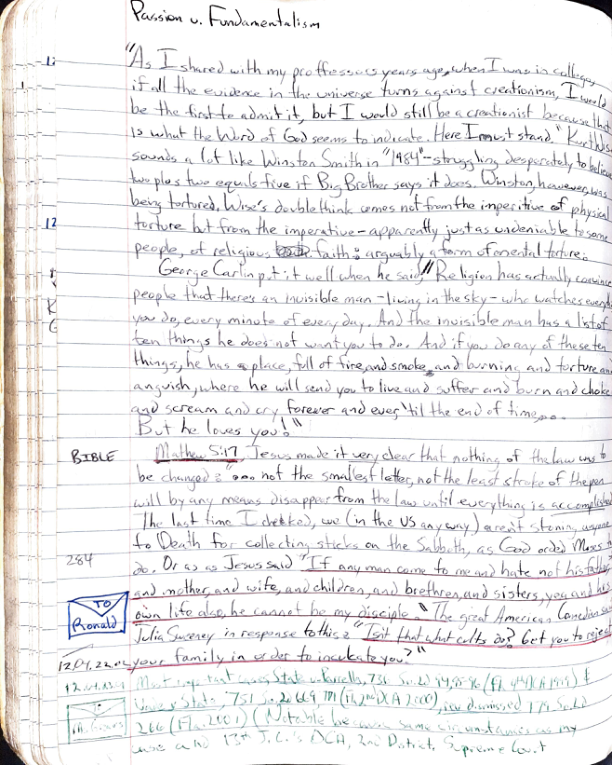 Passion v. Fundamentalism
"As I shared with my proffessors years ago, when I was in college,
if all the evidence in the universe turns against creationism, I would
be the first to admit it, but I would still be a creationist because that
is what the Word of God seems to indicate. Here I must stand." Kurt Wise
sounds a lot like Winston Smith in "1984" - struggling desperately to believe
two plus two equals five if Big Brother says it does. Winston, however, was
being tortured. Wise's doublethink comes not from the imperitive of physical
torture but from the imperative - apparently just as undeniable to some
people, of religious faith: arguably a form of mental torture.
George Carlin put it well when he said, "Religion has actually convince
people that theres an invisible man - living in the sky - who watches everyth
you do, every minute of every day. And the invisible man has a list of
ten things he does not want you to do. And if you do any of these ten
things, he has a place, full of fire, and smoke and burning and torture an
anguish, where he will send you to live and suffer and burn and choke
and scream and cry forever and ever 'til the end of time...
But he loves you!"
BIBLE Mathew 5:17 Jesus made it very clear that nothing of the law was to
be changed: "... not the smallest letter, not the least stroke of the pen
will by any means disappear from the law until everything is accomplished
The last time I checked, we (in the US any way) aren't stoning
to Death for collecting sticks on the Sabbath, as God orded Moses to
284 do. Or as as Jesus said "If any man come to me and hate not his father,
and mother, and wife, and children, and brethren, and sisters, yea and his
TO Ronald own life also, he cannot be my disciple." The great American Comedian
Julia Sweeney in response to this: "Isn't that what cults do? Get you to reject
12.04.22 your family in order to inculcate you?"
Most important case State v.
State, 751 So.2d 669, (Fla. 2nd DCA 2000), rev dismissed 179 So.2d
266 (Fla. 2001) (Notable because same circumstances as my
case also 13th J.C.'s DCA, 2nd District, Supreme Court